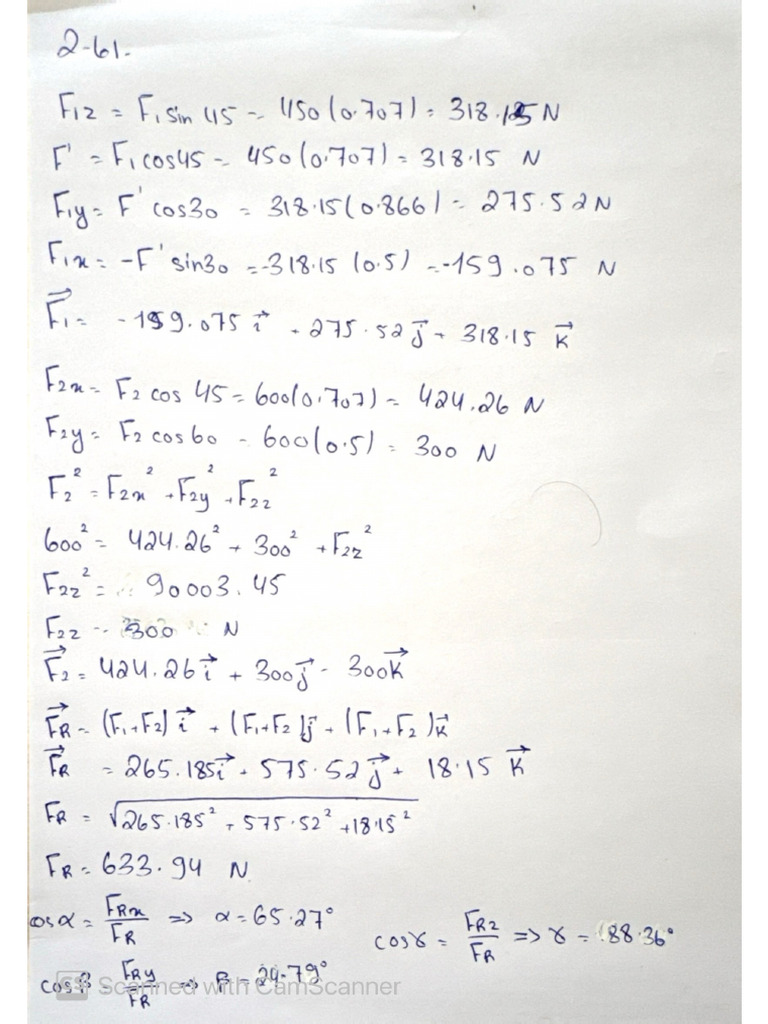 2-61.
F1z = F1 sin 45 = 450 (0.707) = 318.15 N
F' = F1 cos45 = 450 (0.707) = 318.15 N
F1y = F' cos30 = 318.15 (0.866) = 275.52 N
F1x = -F' sin30 = -318.15 (0.5) = -159.075 N
F⃗1 = -159.075 i⃗ + 275.52 j⃗ + 318.15 k⃗
F2x = F2 cos 45 = 600(0.707) = 424.26 N
F2y = F2 cos60 = 600(0.5) = 300 N
F2² = F2x² + F2y² + F2z²
600² = 424.26² + 300² + F2z²
F2z² = 90003.45
F2z = 300 N
F⃗2 = 424.26 i⃗ + 300 j⃗ - 300 k⃗
F⃗R = (F1+F2) i⃗ + (F1+F2) j⃗ + (F1+F2) k⃗
F⃗R = 265.185 i⃗ + 575.52 j⃗ + 18.15 k⃗
FR = √265.185² + 575.52² + 18.15²
FR = 633.94 N
cosα = FRx/FR => α = 65.27°
cosγ = FRz/FR => γ = 88.36°
cosβ = FRy/FR => β = 24.79°
CS Scanned with CamScanner